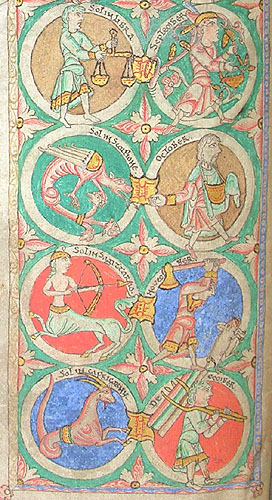 SOL IN LIBRA
SEPTEMBER
SOL IN SCORPIONE
OCTOBER
SOL IN SAGITTARIO
SOL IN CAPRICORNO